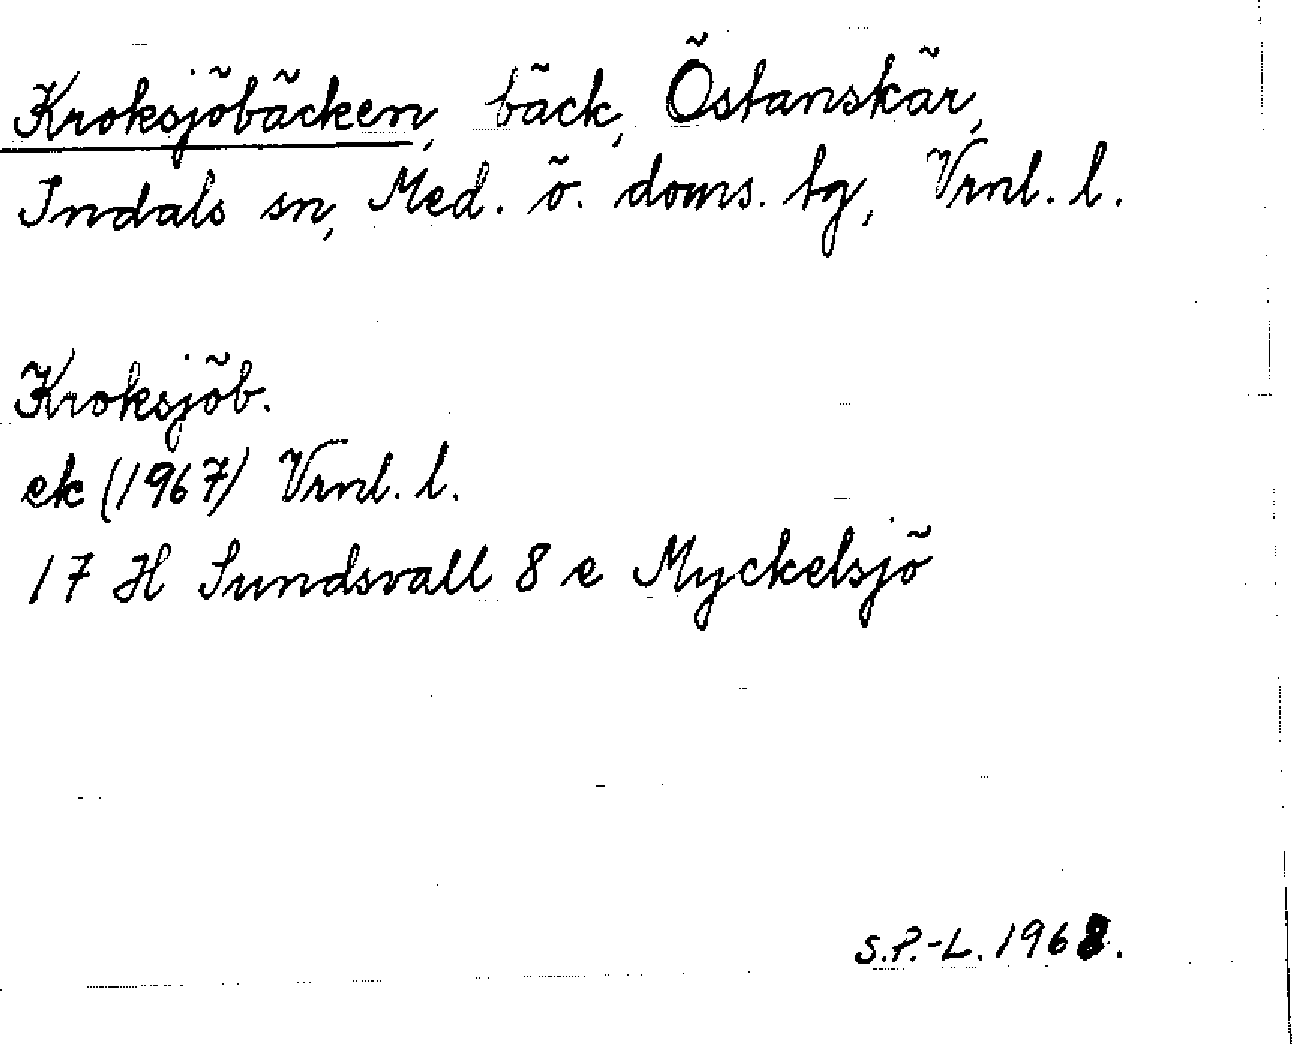 Kroksjöbäcken, bäck, Östanskär,
Indals sn, Med. ö. doms. tg, Vrnl. l.
Kroksjöb.
ek (1967) Vrnl. l.
17 H Sundsvall 8 e Myckelsjö
S.P.-L. 1968.